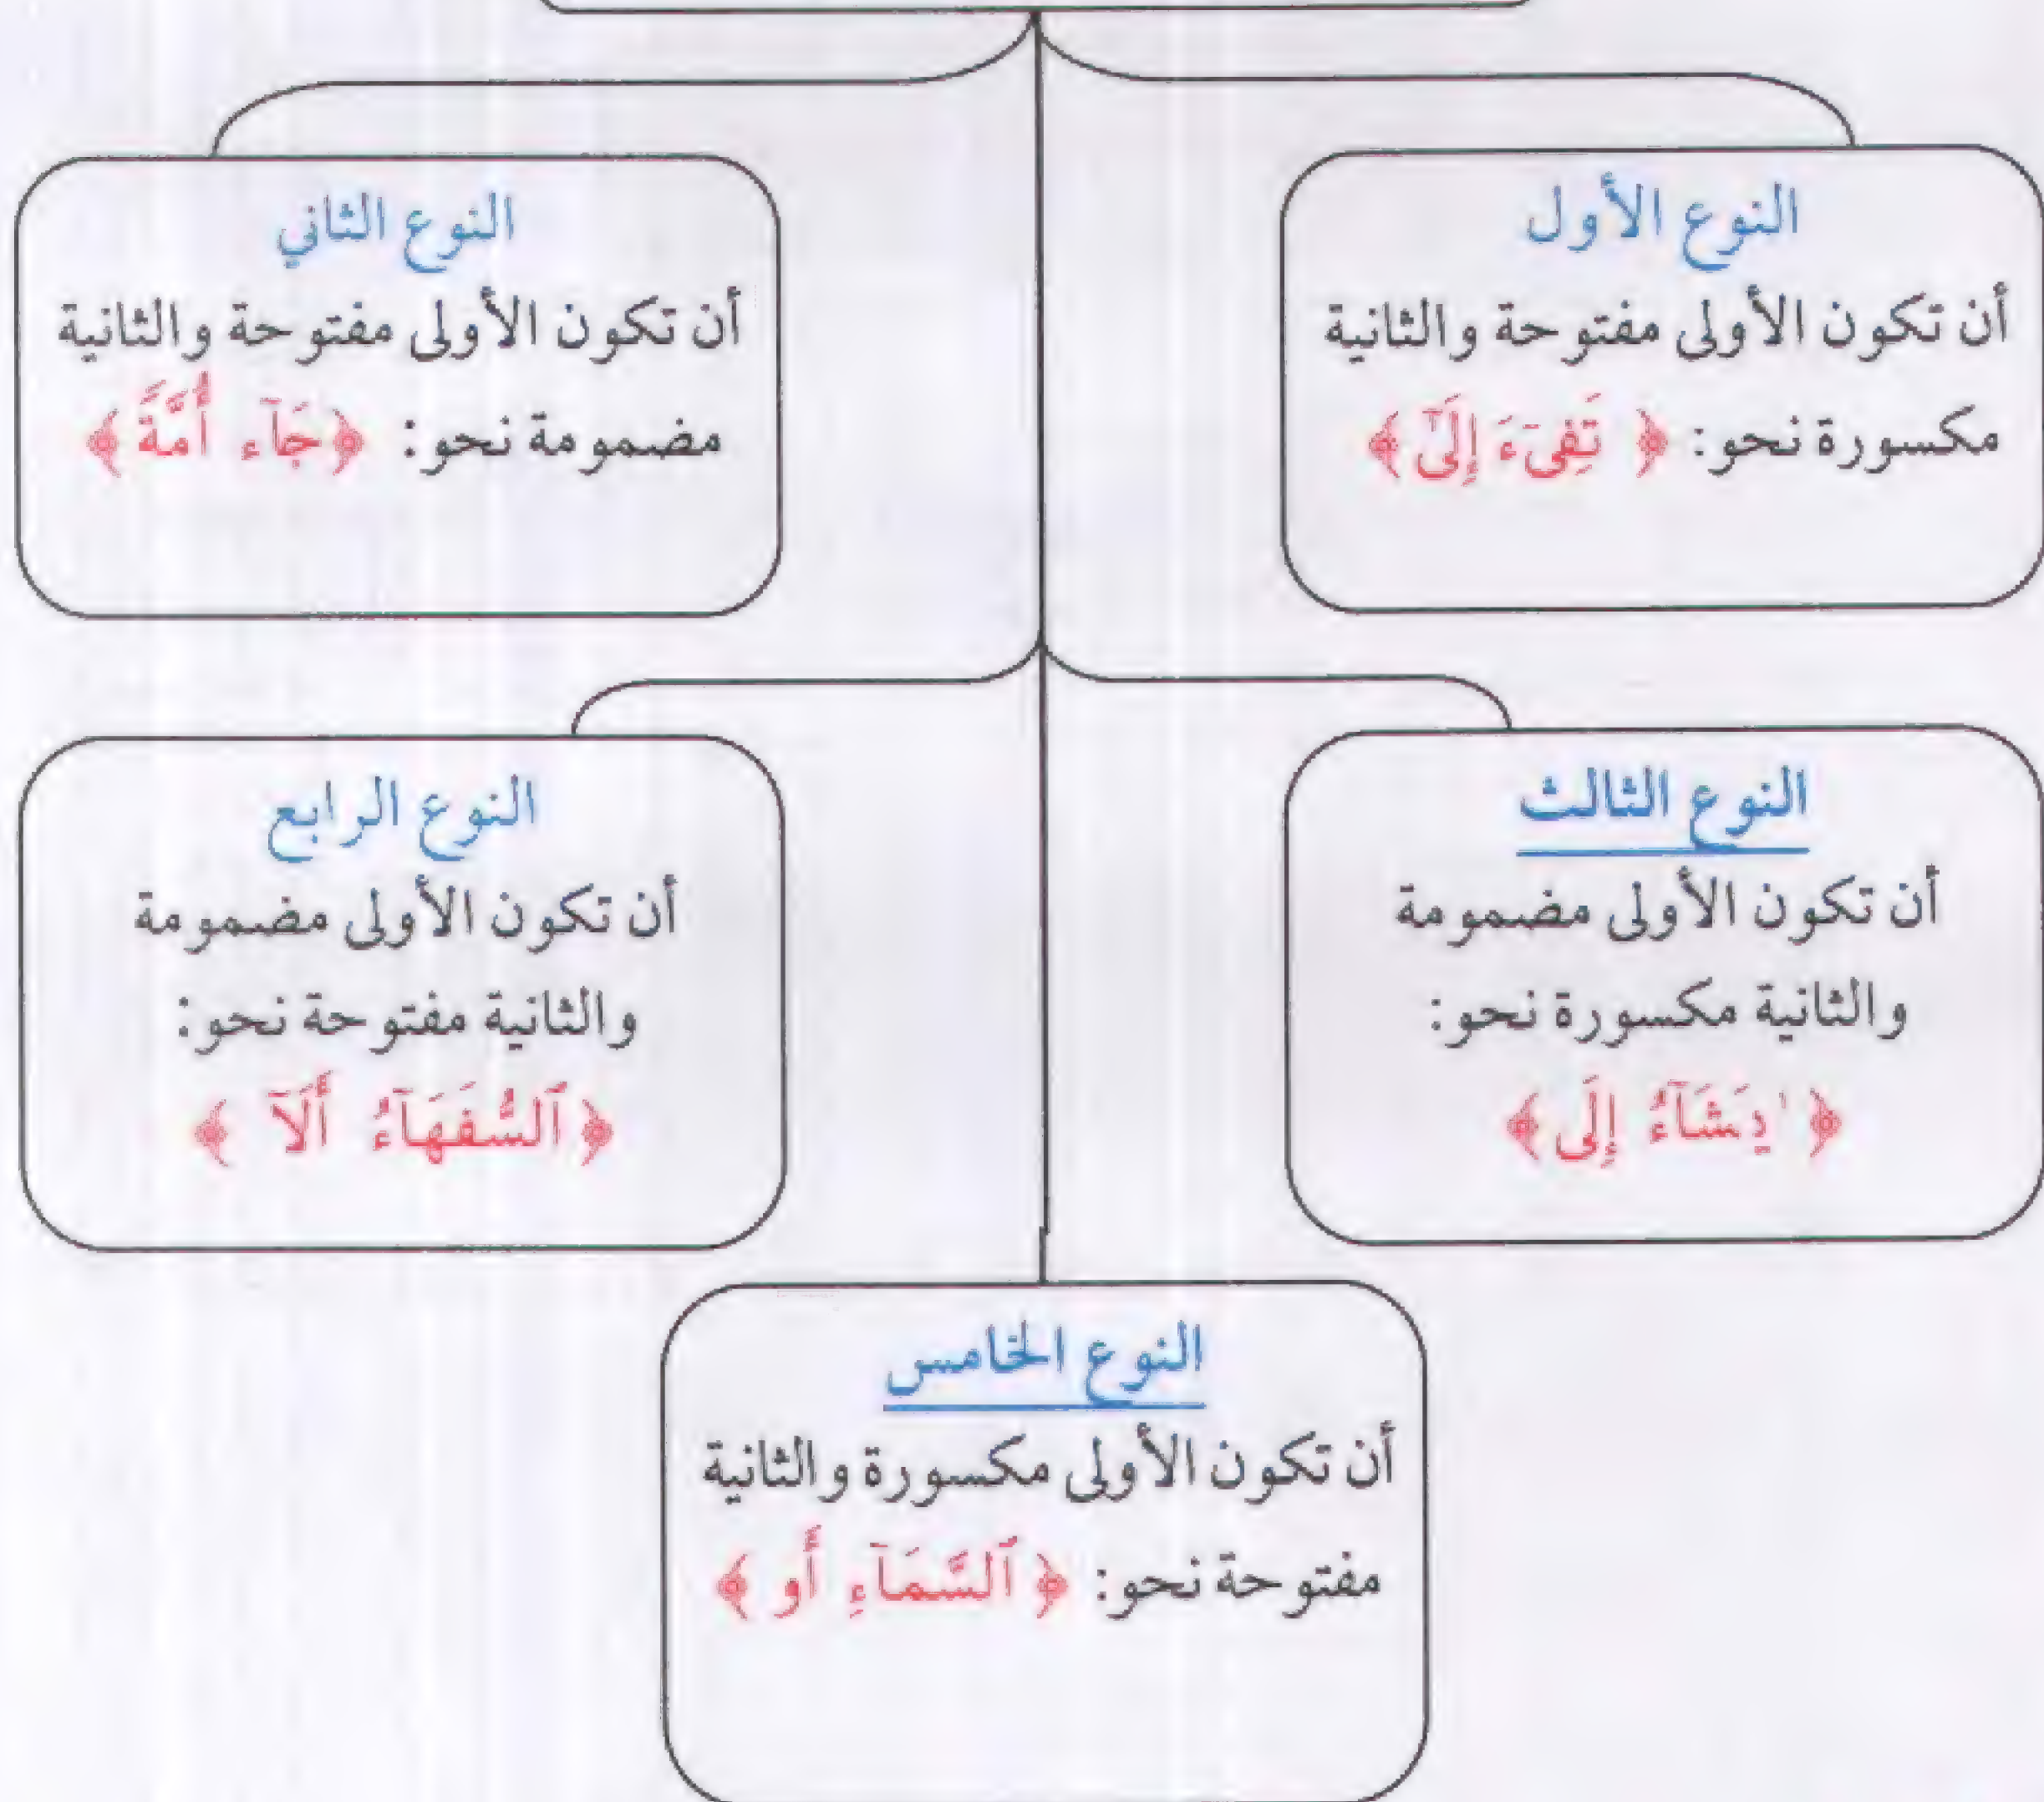 النوع الأول
أن تكون الأولى مفتوحة والثانية
مكسورة نحو: ﴿ تَفِىٓءَ إِلَىٰٓ ﴾
النوع الثاني
أن تكون الأولى مفتوحة والثانية
مضمومة نحو: ﴿جَآء أُمَّةً ﴾
النوع الثالث
أن تكون الأولى مضمومة
والثانية مكسورة نحو:
﴿ يَشَآءُ إِلَى﴾
النوع الرابع
أن تكون الأولى مضمومة
والثانية مفتوحة نحو:
﴿ٱلسُّفَهَآءُ أَلَآ ﴾
النوع الخامس
أن تكون الأولى مكسورة والثانية
مفتوحة نحو: ﴿ ٱلسَّمَآءِ أَو ﴾